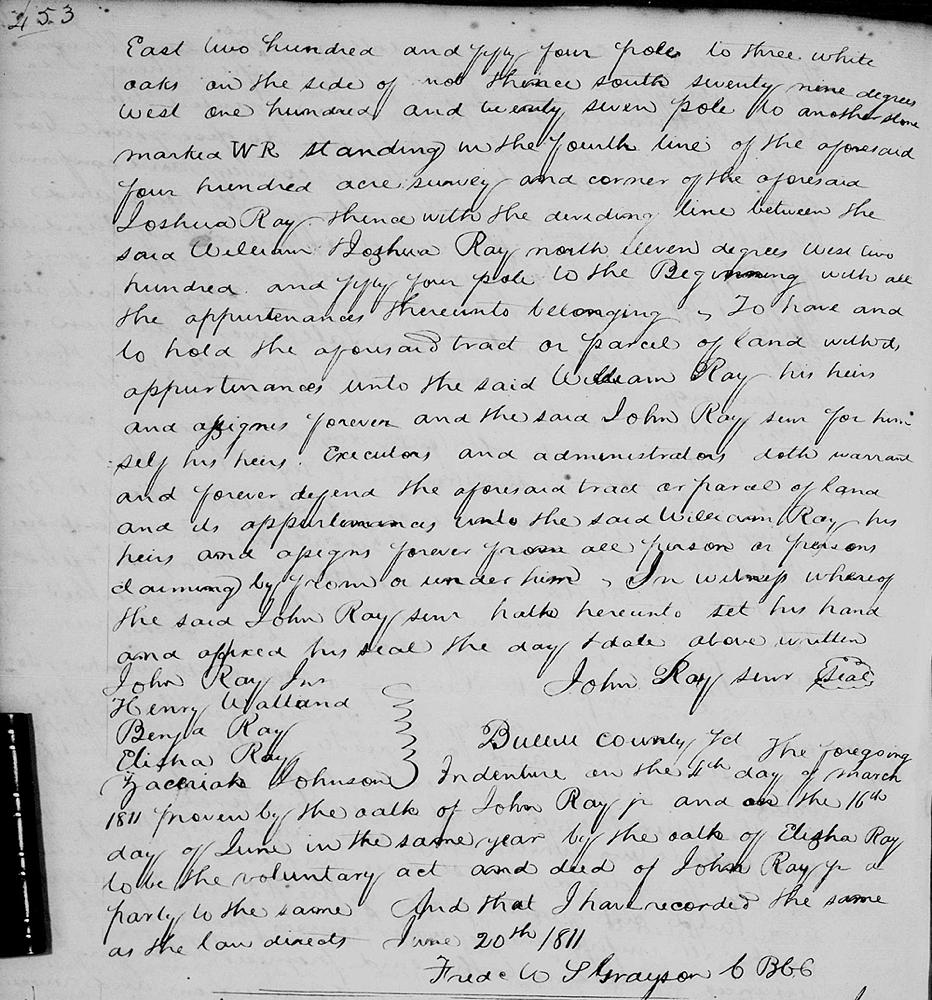 453
East two hundred and fifty four pole to three white
oaks on the side of not thence south seventy nine degrees
West one hundred and twenty seven pole to another stone
marked WR standing in the fourth line of the aforesaid
four hundred acre survey and corner of the aforesaid
Joshua Ray thence with the deviding line between the
said William & Joshua Ray north eleven degrees West two
hundred and fifty four pole to the Beginning with all
the appurtenances thereunto belonging, To have and
to hold the aforesaid tract or parcel of land with its
appurtinances unto the said William Ray his heirs
and assignes forever and the said John Ray senr for him
self his heirs. Executors and administrators doth warrant
and forever defend the aforesaid tract or parcel of land
and its appurtinances unto the said William Ray his
heirs and assigns forever from all person or persons
claiming by from or under him, In witness whereof
the said John Ray senr hath hereunto set his hand
and affixed his seal the day & date above written
John Ray senr Seal
John Ray Jnr
Henry Walland
Benja Ray
Elisha Ray
Zaceriah Johnson
Bullitt County Sct The foregoing
Indenture on the 4th day of March
1811 proven by the oath of John Ray jr and on the 16th
day of June in the same year by the oath of Elisha Ray
to be the voluntary act and deed of John Ray jr a
party to the same And that I have recorded the same
as the law directs June 20th 1811
Frede W S Grayson C B C C